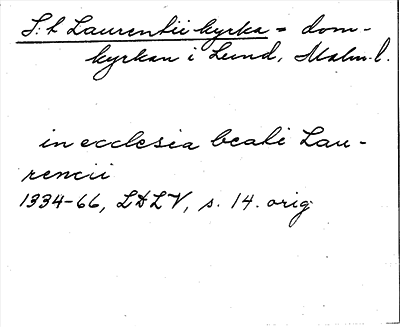 S:t Laurentii kyrka = dom-
kyrkan i Lund, Malm. l.
in ecclesia beati Lau-
rencii
1334-66, LDLV, s. 14. orig